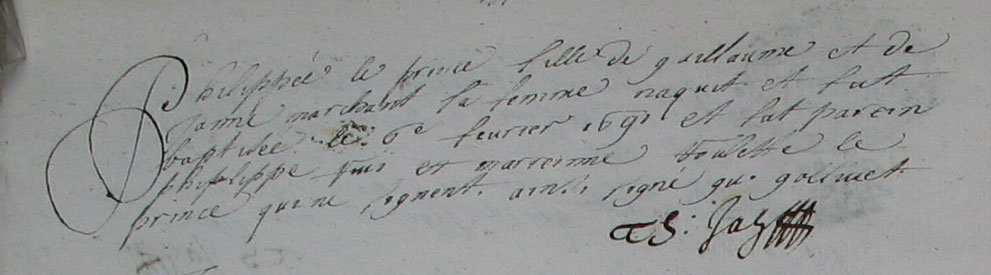 Philippée le prince fille de guillaume et de
Janne marchant sa femme naquit et fut
baptisée le 6e feurier 1691 et fut parein
philippe et marreinne le
prince qui ne signent. ainsi signé